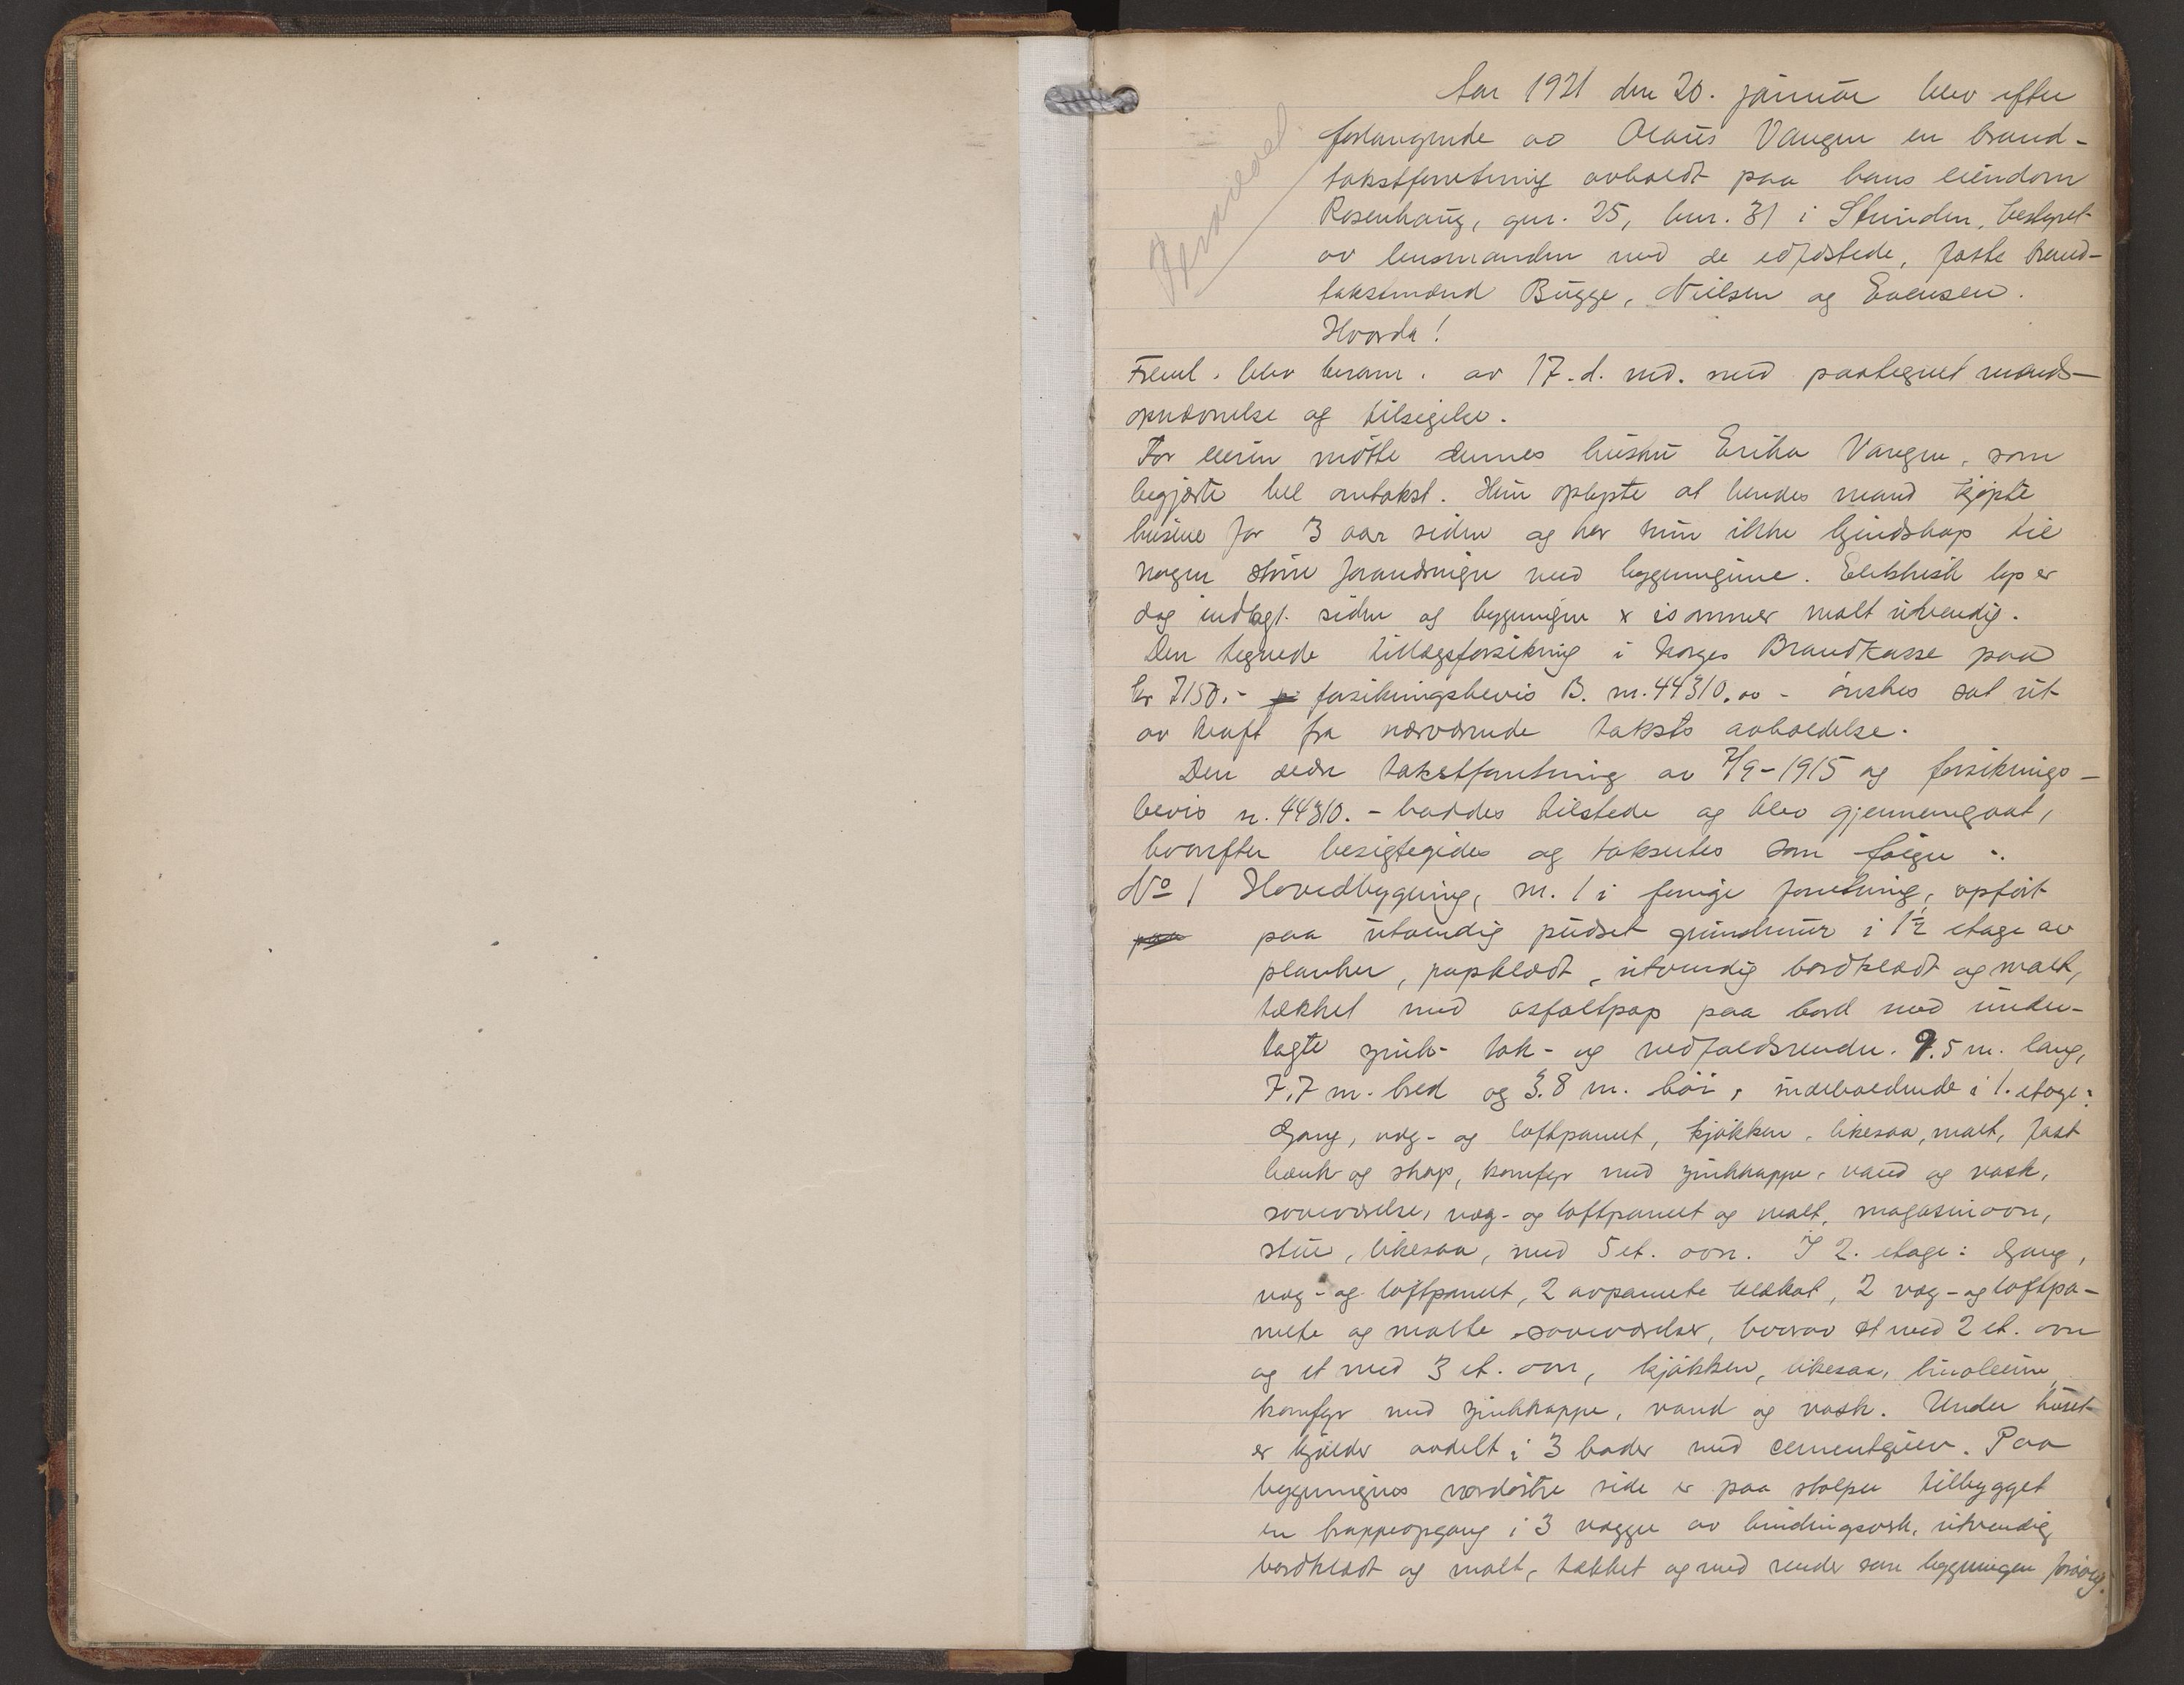 Aar 1921 den 20. januar blev efter
forlangende av Olaus Vangen en brand-
takstforretning avholdt paa hans eiendom
Rosenhaug, gnr. 25, bnr. 31 i Strinden, bestyret
av lensmanden med de edfæstede, faste brand-
takstmænd Bugge, Nielsen og Evensen.
Hvorda!
Freml. blev beram. av 17. d. md. med paategnet mands-
opnævnelse og tilsigelse.
For eieren møtte dennes hustru Erika Vangen, som
begjærte hel omtakst. Hun oplyste at hendes mand kjøpte
husene for 3 aar siden og har hun ikke kjendskap til
nogen større forandringer ved bygningene. Elektrisk lys er
dog indlagt siden og bygningen x isommer malt utvendig.
Den tegnede tillægsforsikring i Norges Brandkasse paa
kr 7150.- forsikringsbevis B. nr. 44310.00 - ønskes sat ut
av kraft fra nærværende taksts avholdelse.
Den ældre takstforretning av 7/9-1915 og forsikrings-
bevis nr. 44310. - haddes tilstede og blev gjennemgaat,
hvorefter besigtigedes og takseres som følger :.
No 1 Hovedbygning, nr. 1 i forrige forretning, opført
paa paa utvendig pudset grundmur i 1½ etage av
planker, papklædt, utvendig bordklædt og malt,
tækket med asfaltpap paa bord med under-
lagte zink- tak- og nedfaldsrender. 9.5 m. lang,
7.7 m. bred og 3.8 m. høi, indeholdende i 1. etage:
Gang, væg- og loftpanelt, kjøkken, likesaa, malt, fast
bænk og skap, komfyr med zinkkappe, vand og vask,
soveværelse, væg- og loftpanelt og malt, magasinovn,
stue, likesaa, med 5 et. ovn. I 2. etage: Gang,
væg- og loftpanelt, 2 avpanelte klækot, 2 væg- og loftpa-
nelte og malte soveværelser, hvorav et med 2 et. ovn
og et med 3 et. ovn, kjøkken, likesaa, linoleum,
komfyr med zinkkappe, vand og vask. Under huset
er kjælder avdelt i 3 boder med cementgulv. Paa
bygningens nordøstre side er paa stolper tilbygget
en trappeopgang i 3 vægger av bindingsverk, utvendig
bordklædt og malt, tækket og med render som bygningen forøvrig.